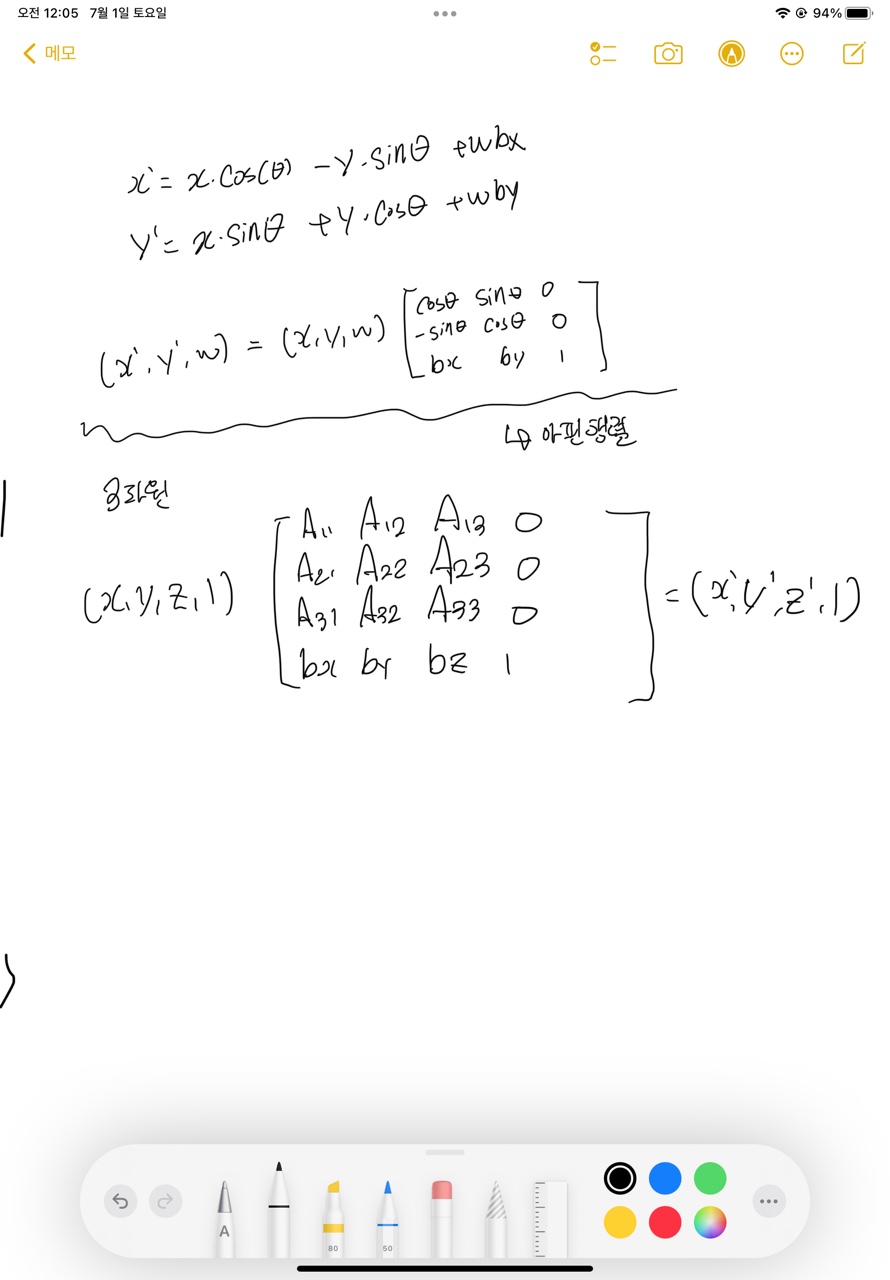 오전 12:05 7월 1일 토요일 94%
메모
x' = x·cos(θ) - y·sinθ + wbx
y' = x·sinθ + y·cosθ + wby
(x', y', w) = (x, y, w) [cosθ sinθ 0
-sinθ cosθ 0
bx by 1]
↳ 아핀행렬
3차원
(x, y, z, 1) [A11 A12 A13 0
A21 A22 A23 0
A31 A32 A33 0
bx by bz 1] = (x', y', z', 1)
A 80 50